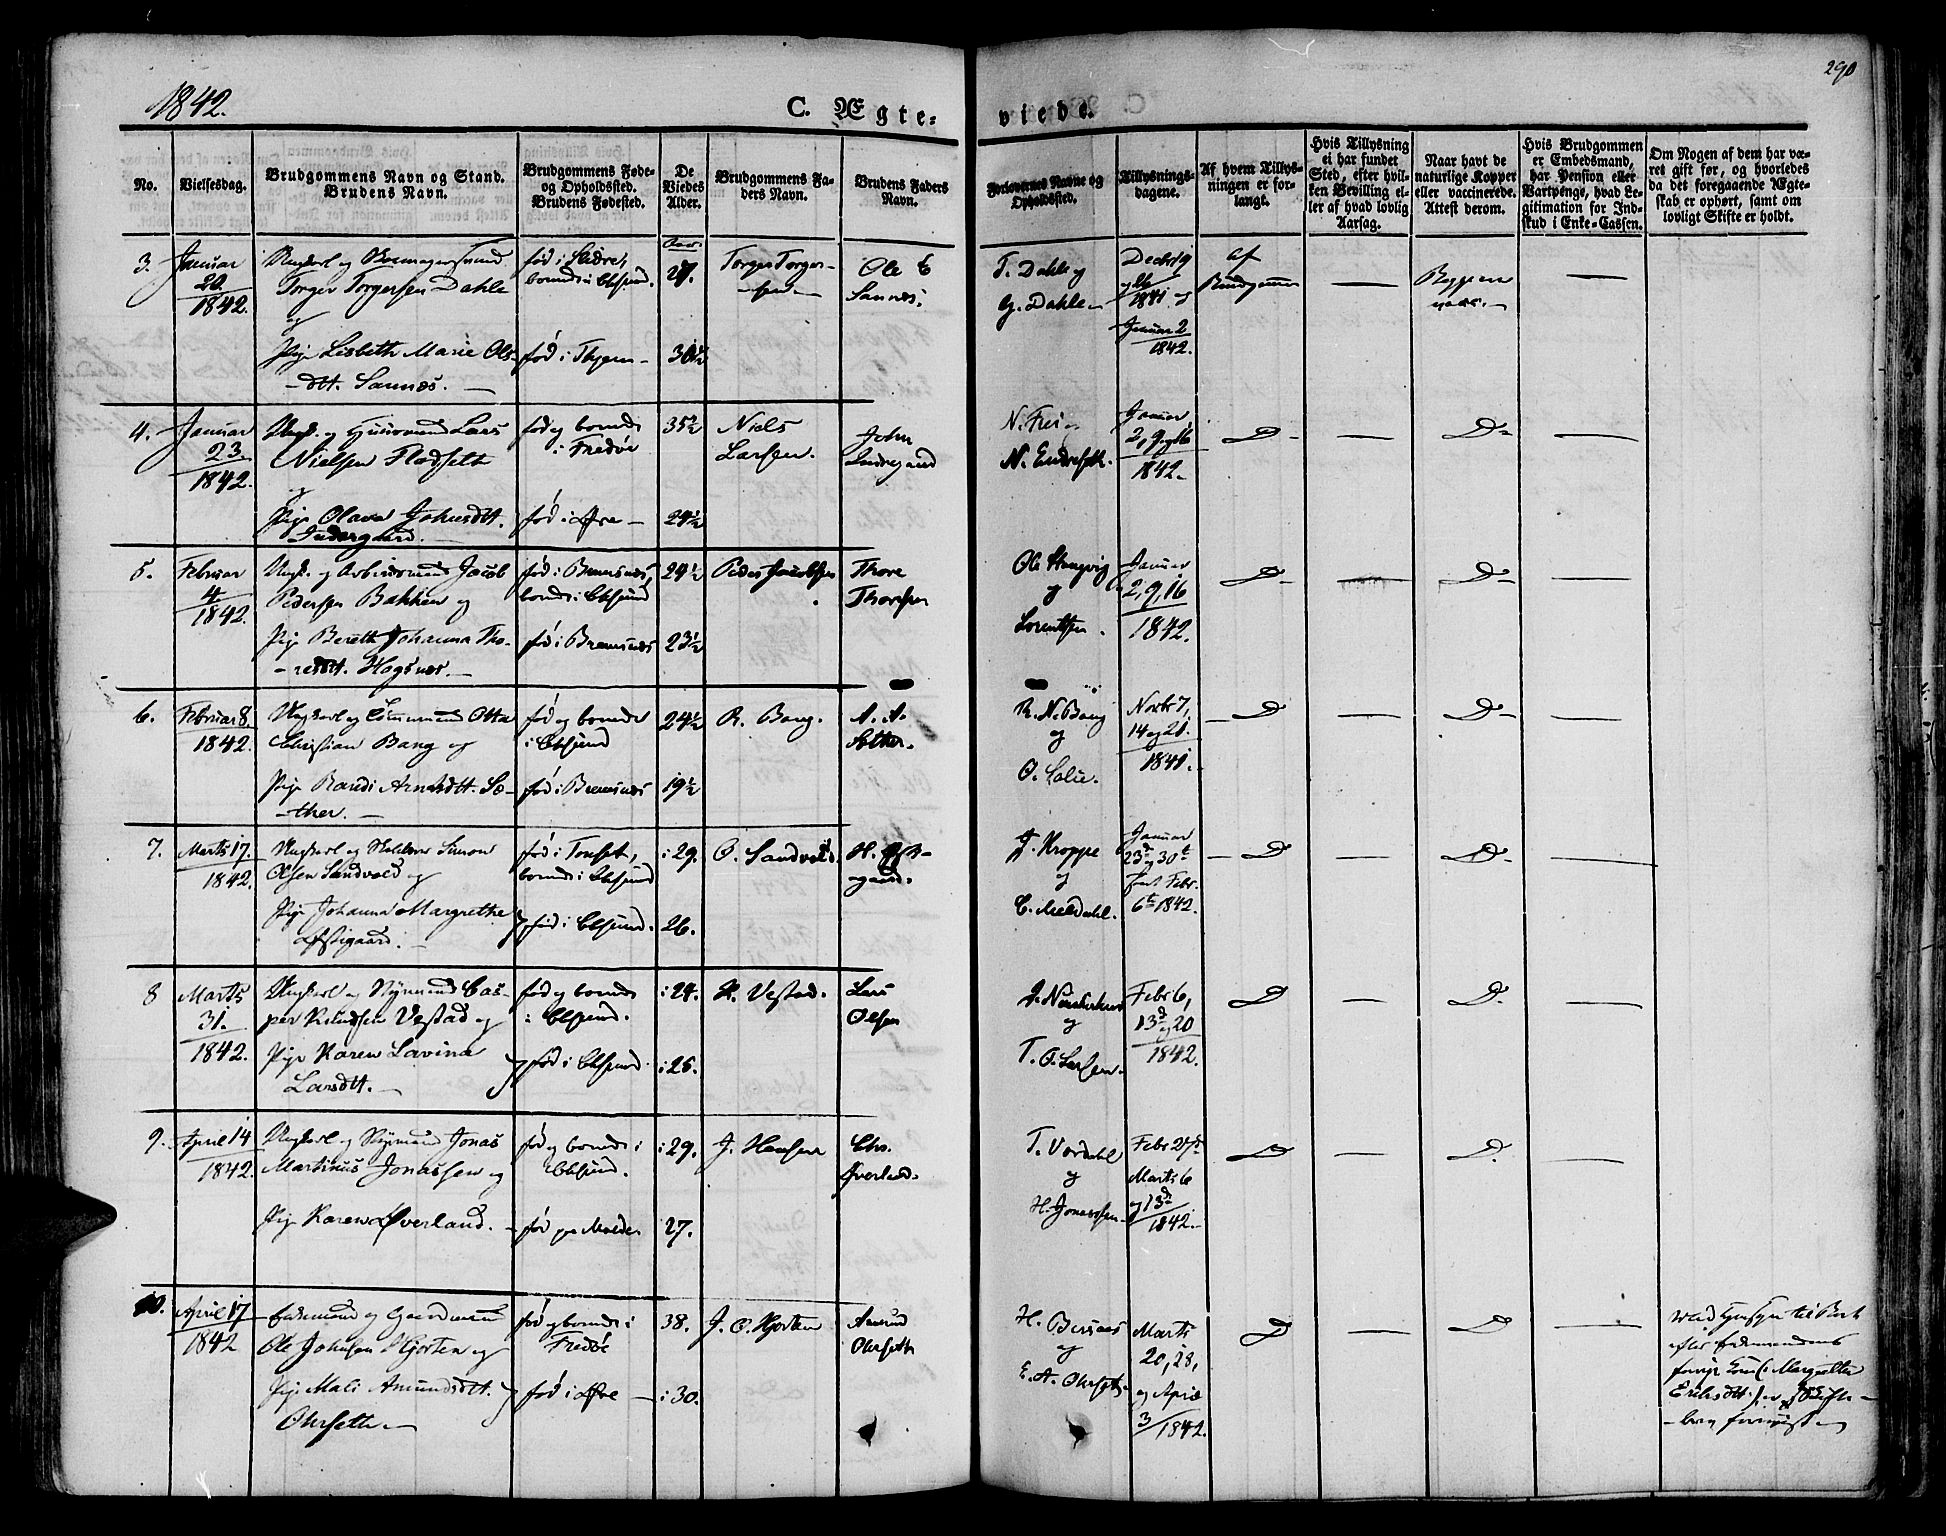 1842.
C. Ægte-
viede.
290
No.
Vielsesdag.
Brudgommens Navn og Stand.
Brudens Navn.
Brudgommens Føde-
og Opholdssted.
Brudens Fødested.
De
Viedes
Alder.
Brudgommens Fa-
ders Navn.
Brudens Faders
Navn.
Forlovernes Navne og
Opholdssted.
Tillysnings-
dagene.
Af hvem Tillys-
ningen er for-
langt.
Hvis Tillysning
ei har fundet
Sted, efter hvil-
ken Bevilling el-
ler af hvad lovlig
Aarsag.
Naar havt de
naturlige Kopper
eller vaccinerede.
Attest derom.
Hvis Brudgommen
er Embedsmand,
har Pension eller
Vartpenge, hvad Le-
gitimation for Ind-
skud i Enke-Cassen.
Om Nogen af dem har væ-
ret gift før, og hvorledes
da det foregaaende Ægte-
skab er ophørt, samt om
lovligt Skifte er holdt.
3.
Januar
20
1842.
Ungkarl og
Torger Torgersen Dahle
og
Pige Lisbeth Marie Ols-
dtt. Sannes.
fød i
boende i
fød i
Aar
27.
30½
Torger Torger-
sen
Ole E
Sannes.
T. Dahle og
G. Dahle
Decbr 19
1841 og
Januar 2
1842.
af
Brudgommen
4.
Januar
23.
1842.
Ungk. og Huusmand Lars
Nielsen Flodseth
og
Pige Olava Johnsdtt.
Indergaard.
fød og boende
i Fredøe
fød i Øre
35½
24½
Niels
Larsen.
John
Indergaard
N. Frei og
N. Endreseth.
Januar
2, 9 og 16
1842.
D
D
5.
Februar
4
1842.
Ungk. og Arbeidsmand Jacob
Pedersen Bakken og
Pige Bereth Johanna Tho-
resdtt. Hagsnes.
fød i Bremsnes,
boende i Chsund
fød i Bremsnes
24½
23½
Peder Jacobsen
Thore
Thoresen
Ole
og
Lorentsen.
Januar
2, 9, 16
1842.
D
D
6.
Februar 8
1842.
Ungkarl og Tømmermand Otto
Christian Bang og
Pige Randi Arnesdtt. Sæ-
ther.
fød og boende
i Chsund
fød i Bremsnes
24½
19½
R. Bang.
A. A.
Sæther.
R. N. Bang
og
O. Lolie.
Novbr 7,
14 og 21.
1841.
D
D
7.
Marts 17.
1842.
Ungkarl og Simon
Olsen Sandvold og
Pige Johanna Margrethe
Østigaard.
fød i Tonset,
boende i Chsund
fød i Chsund.
i 29.
26.
O. Sandvold.
H.
gaard.
J. Kroppe
og
C. Meldahl.
Januar
23d og 30t
samt Febr.
6t 1842.
D
D
8
Marts
31.
1842.
Ungkarl og Styrmand Cas-
per Knudsen Vestad og
Pige Karen Lavina
Larsdtt.
fød og boende
i Chsund.
fød i Chsund
i 24.
i 25.
K. Vestad.
Lars
Olsen
og
T. O. Larsen.
Febr 6,
13d og 20
1842.
D
D.
9.
April 14
1842.
Ungkarl og Styrmand Jonas
Martinus Jonassen og
Pige Karen Øverland.
fød og boende i
Chsund.
fød paa Molde
i 29.
27.
J. Hansen
Chr.
Øverland.
T. Vordahl
og
H. Jonassen
Febr 27d
Marts 6
og 13d
1842.
D
D.
10.
April 17
1842
Enkemand og Gaardmand
Ole Johnsen Hjorten og
Pige Mali Amundsdtt.
Ohrseth.
fød og boende i
Fredøe
fød i Øre
38.
i 30.
J. O. Hjorten
Amund
Ohrseth
H. Bersaas
og
E. A. Ohrseth
Marts
20, 28,
og April
3/1842.
D
D
med Hensyn til
efter Enkemandens
forrige Kone Margrethe
Eriksdtt.